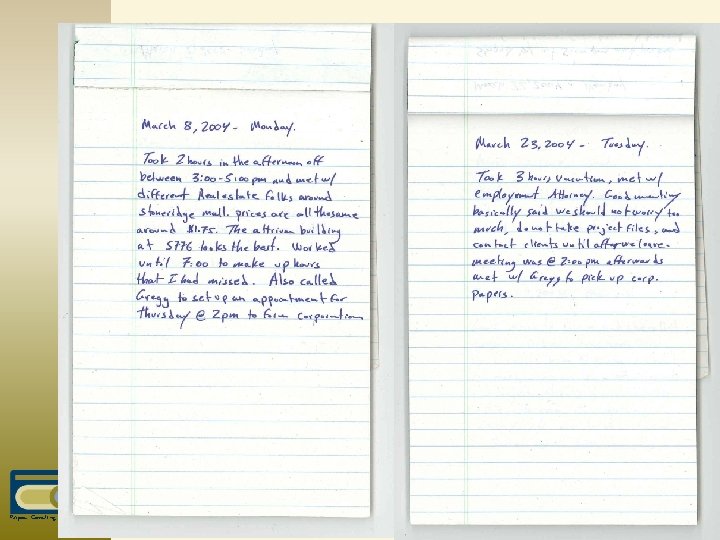 March 8, 2004 - Monday.
Took 2 hours in the afternoon off
between 3:00-5:00 pm and met w/
different Real estate folks around
stoneridge mall. prices are all the same
around $1.75. The attrium building
at 5776 looks the best. Worked
until 7:00 to make up hours
that I had missed. Also called
Gregg to set up an appointment for
Thursday @ 2pm to form corporation
March 23, 2004 - Tuesday.
Took 3 hours vacation, met w/
employment Attorney. Good meeting
basically said we should not worry too
much, do not take project files, and
contact clients until after we leave.
meeting was @ 2:00 pm afterwards
met w/ Gregg to pick up corp.
papers.
Consulting